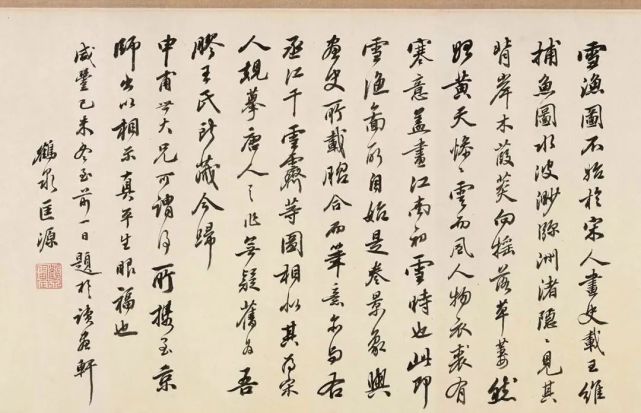 雪漁圖不始於宋人畫史載王維
捕魚圖水波渺瀰洲渚隱〻見其
背岸木葭菼向搖落草萎然
始黃天慘〻雲而風人物衣裘有
寒意蓋畫江南初雪時也此即
雪漁圖所自始是卷景象與
畫史所載脗合而筆意亦與右
丞江干雪霽等圖相似其為宋
人規摹唐人之作無疑舊為吾
膠王氏所藏今歸
申甫世大兄可謂得所攜至京
師出以相示真平生眼福也
咸豐己未冬至前一日題於讀畫軒
鶴泉匡源